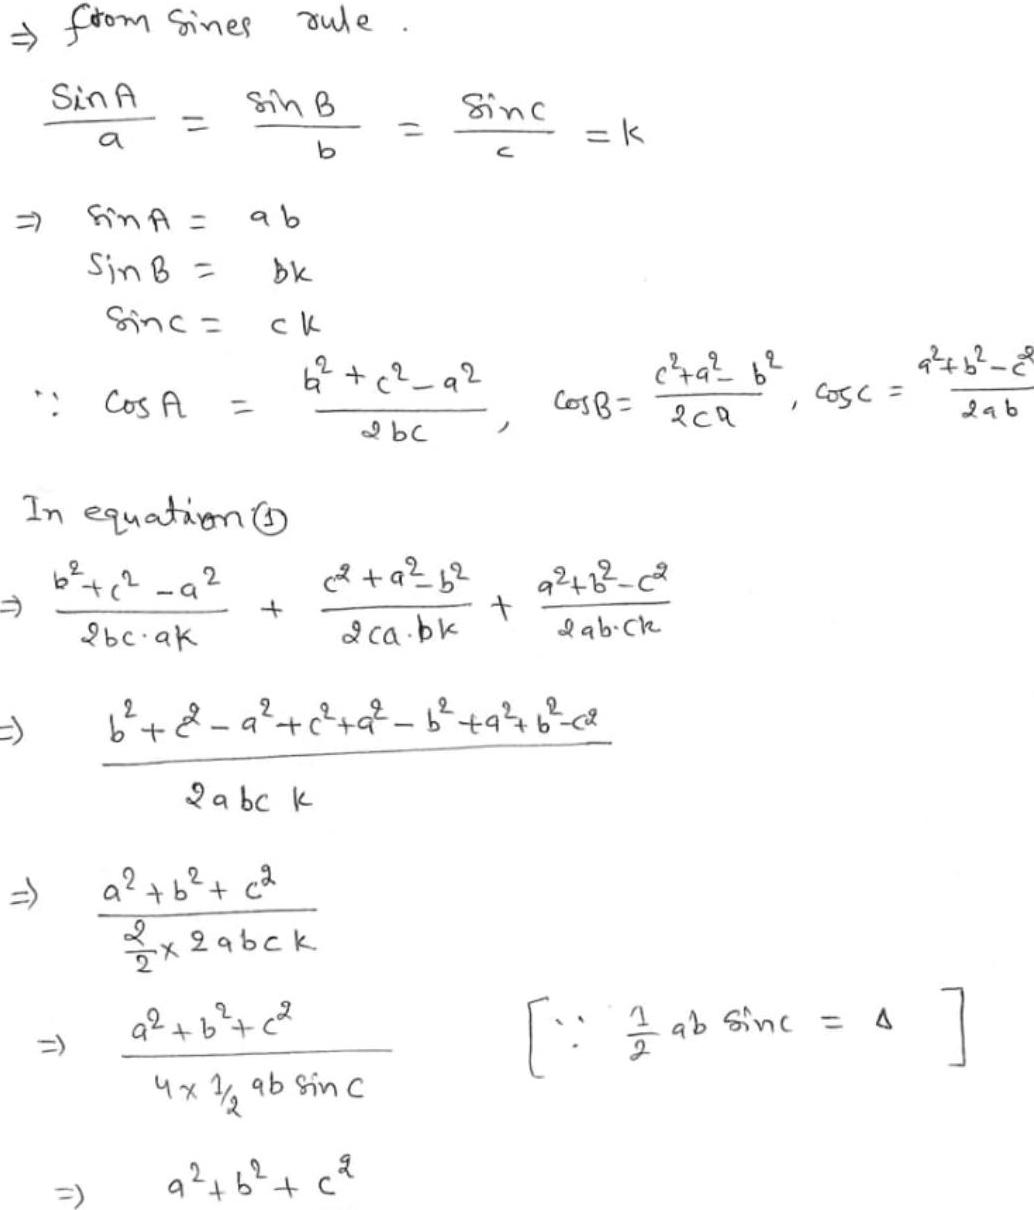 ⇒ from Sines rule .
Sin A / a = Sin B / b = Sin C / c = k
⇒ Sin A = ab
Sin B = bk
Sin C = ck
∵ Cos A = b² + c² - a² / 2bc , Cos B = c² + a² - b² / 2ca , Cos C = a² + b² - c² / 2ab
In equation ①
⇒ b² + c² - a² / 2bc·ak + c² + a² - b² / 2ca·bk + a² + b² - c² / 2ab·ck
⇒ b² + c² - a² + c² + a² - b² + a² + b² - c² / 2abc k
⇒ a² + b² + c² / 2/2 × 2abck
⇒ a² + b² + c² / 4 × 1/2 ab Sin C [∵ 1/2 ab Sin C = Δ]
⇒ a² + b² + c²